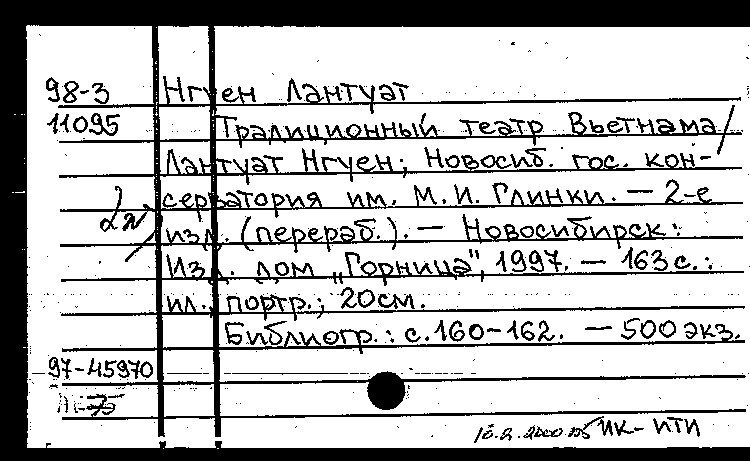 98-3 Нгуен Лантуат
11095 Традиционный театр Вьетнама /
Лантуат Нгуен; Новосиб. гос. кон-
серватория им. М.И. Глинки. — 2-е
изд. (перераб.). — Новосибирск:
Изд. дом „Горница", 1997. — 163 с.:
ил., портр.; 20 см.
Библиогр.: с. 160-162. — 500 экз.
97-45970
ИК- ИТИ